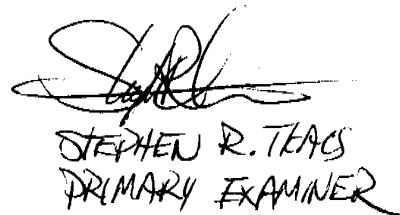 STEPHEN R. TKACS
PRIMARY EXAMINER